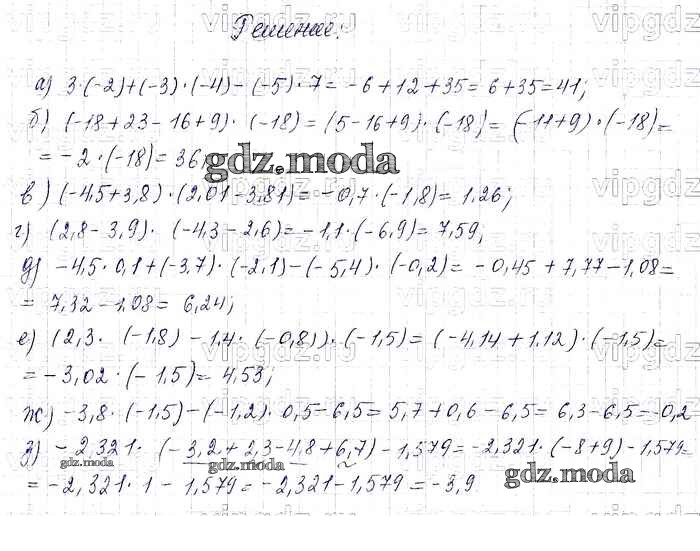 Решение:
а) 3·(-2)+(-3)·(-4)-(-5)·7= -6+12+35= 6+35=41;
б) (-18+23-16+9)·(-18)= (5-16+9)·(-18)= (-11+9)·(-18)=
= -2·(-18)= 36;
gdz.moda
в) (-4,5+3,8)·(2,01-3,81)= -0,7·(-1,8)= 1,26;
г) (2,8-3,9)·(-4,3-2,6)= -1,1·(-6,9)= 7,59;
д) -4,5·0,1+(-3,7)·(-2,1)-(-5,4)·(-0,2)= -0,45+7,77-1,08=
= 7,32-1,08= 6,24;
е) (2,3·(-1,8)-1,4·(-0,8))·(-1,5)= (-4,14+1,12)·(-1,5)=
= -3,02·(-1,5)= 4,53;
ж) -3,8·(-1,5)-(-1,2)·0,5-6,5= 5,7+0,6-6,5= 6,3-6,5=-0,2
з) -2,321·(-3,2+2,3-4,8+6,7)-1,579= -2,321·(-8+9)-1,579=
gdz.moda gdz.moda
= -2,321·1-1,579= -2,321-1,579= -3,9
gdz.moda